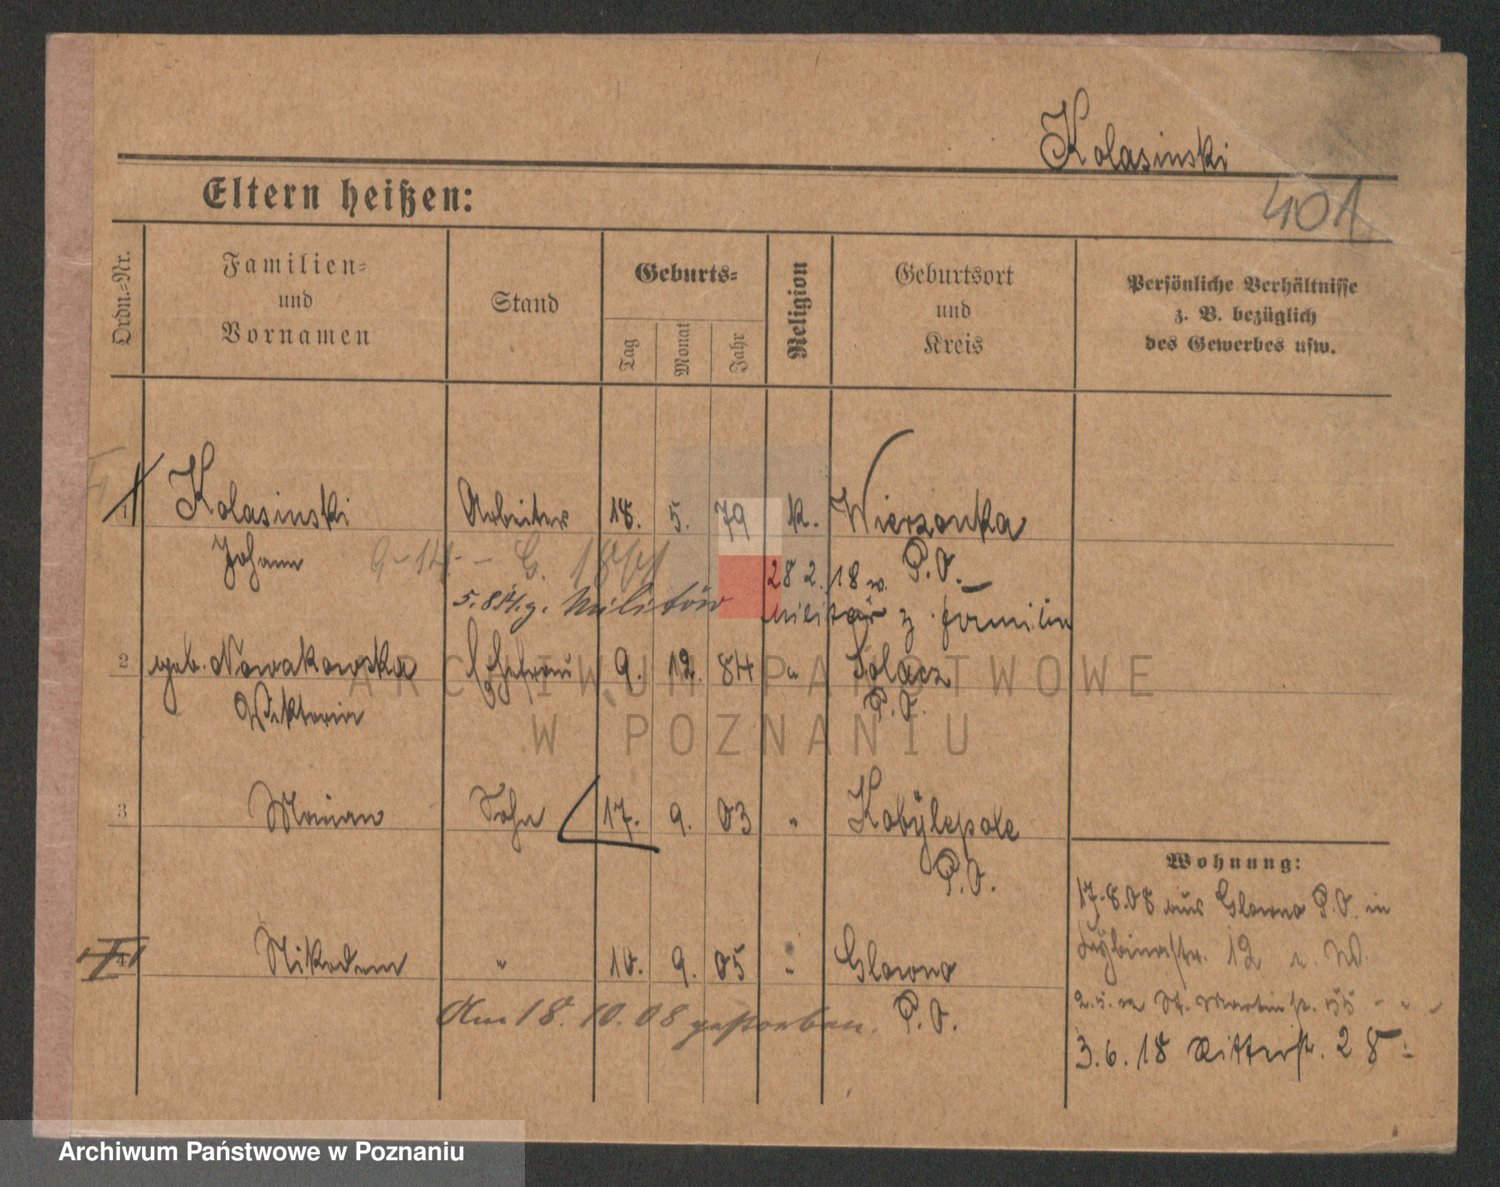 Kolasinski
401
Eltern heißen:
Ordn.-Nr.
Familien-
und
Vornamen
Stand
Geburts-
Tag
Monat
Jahr
Religion
Geburtsort
und
Kreis
Persönliche Verhältnisse
z. B. bezüglich
des Gewerbes usw.
1 Kolasinski Arbeiter 18. 5. 79 k. Wierzonka
Johann P.O.
28 2. 18 w.
5.8.14. z. Militär Militär z. Familie
2 geb. Nowakowska Ehefrau 9. 12. 84 " Solacz
Wiktoria P.O.
ARCHIWUM PAŃSTWOWE
W POZNANIU
3 Marian Sohn 17. 9. 03 " Kobylepole
P.O.
Wohnung:
17.8.08 aus Glowno P.O. in
12
4 Nikodem " 10. 9. 05 " Glowno
Am 18. 10. 08 gestorben. P.O.
St. Martinstr. 55
3.6.18 Ritterstr. 28
Archiwum Państwowe w Poznaniu